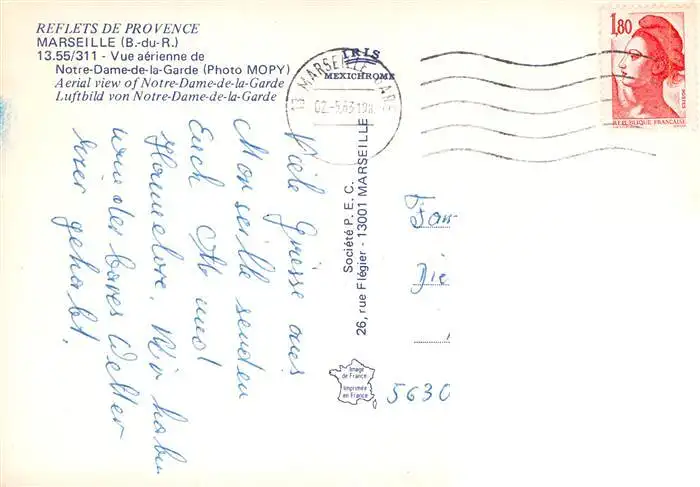 REFLETS DE PROVENCE
MARSEILLE (B.-du-R.)
13.55/311 - Vue aérienne de
Notre-Dame-de-la-Garde (Photo MOPY)
Aerial view of Notre-Dame-de-la-Garde
Luftbild von Notre-Dame-de-la-Garde
IRIS
MEXICHROME
13 MARSEILLE GARE
1,80
POSTES
REPUBLIQUE FRANÇAISE
Viele Grüsse aus
Marseille senden
Euch und
Hannelore. Wir haben
wunderbares Wetter
hier gehabt.
Société P.E.C.
26, rue Flégier - 13001 MARSEILLE
Fam
Die
5630
Image
de France
Imprimée
en France